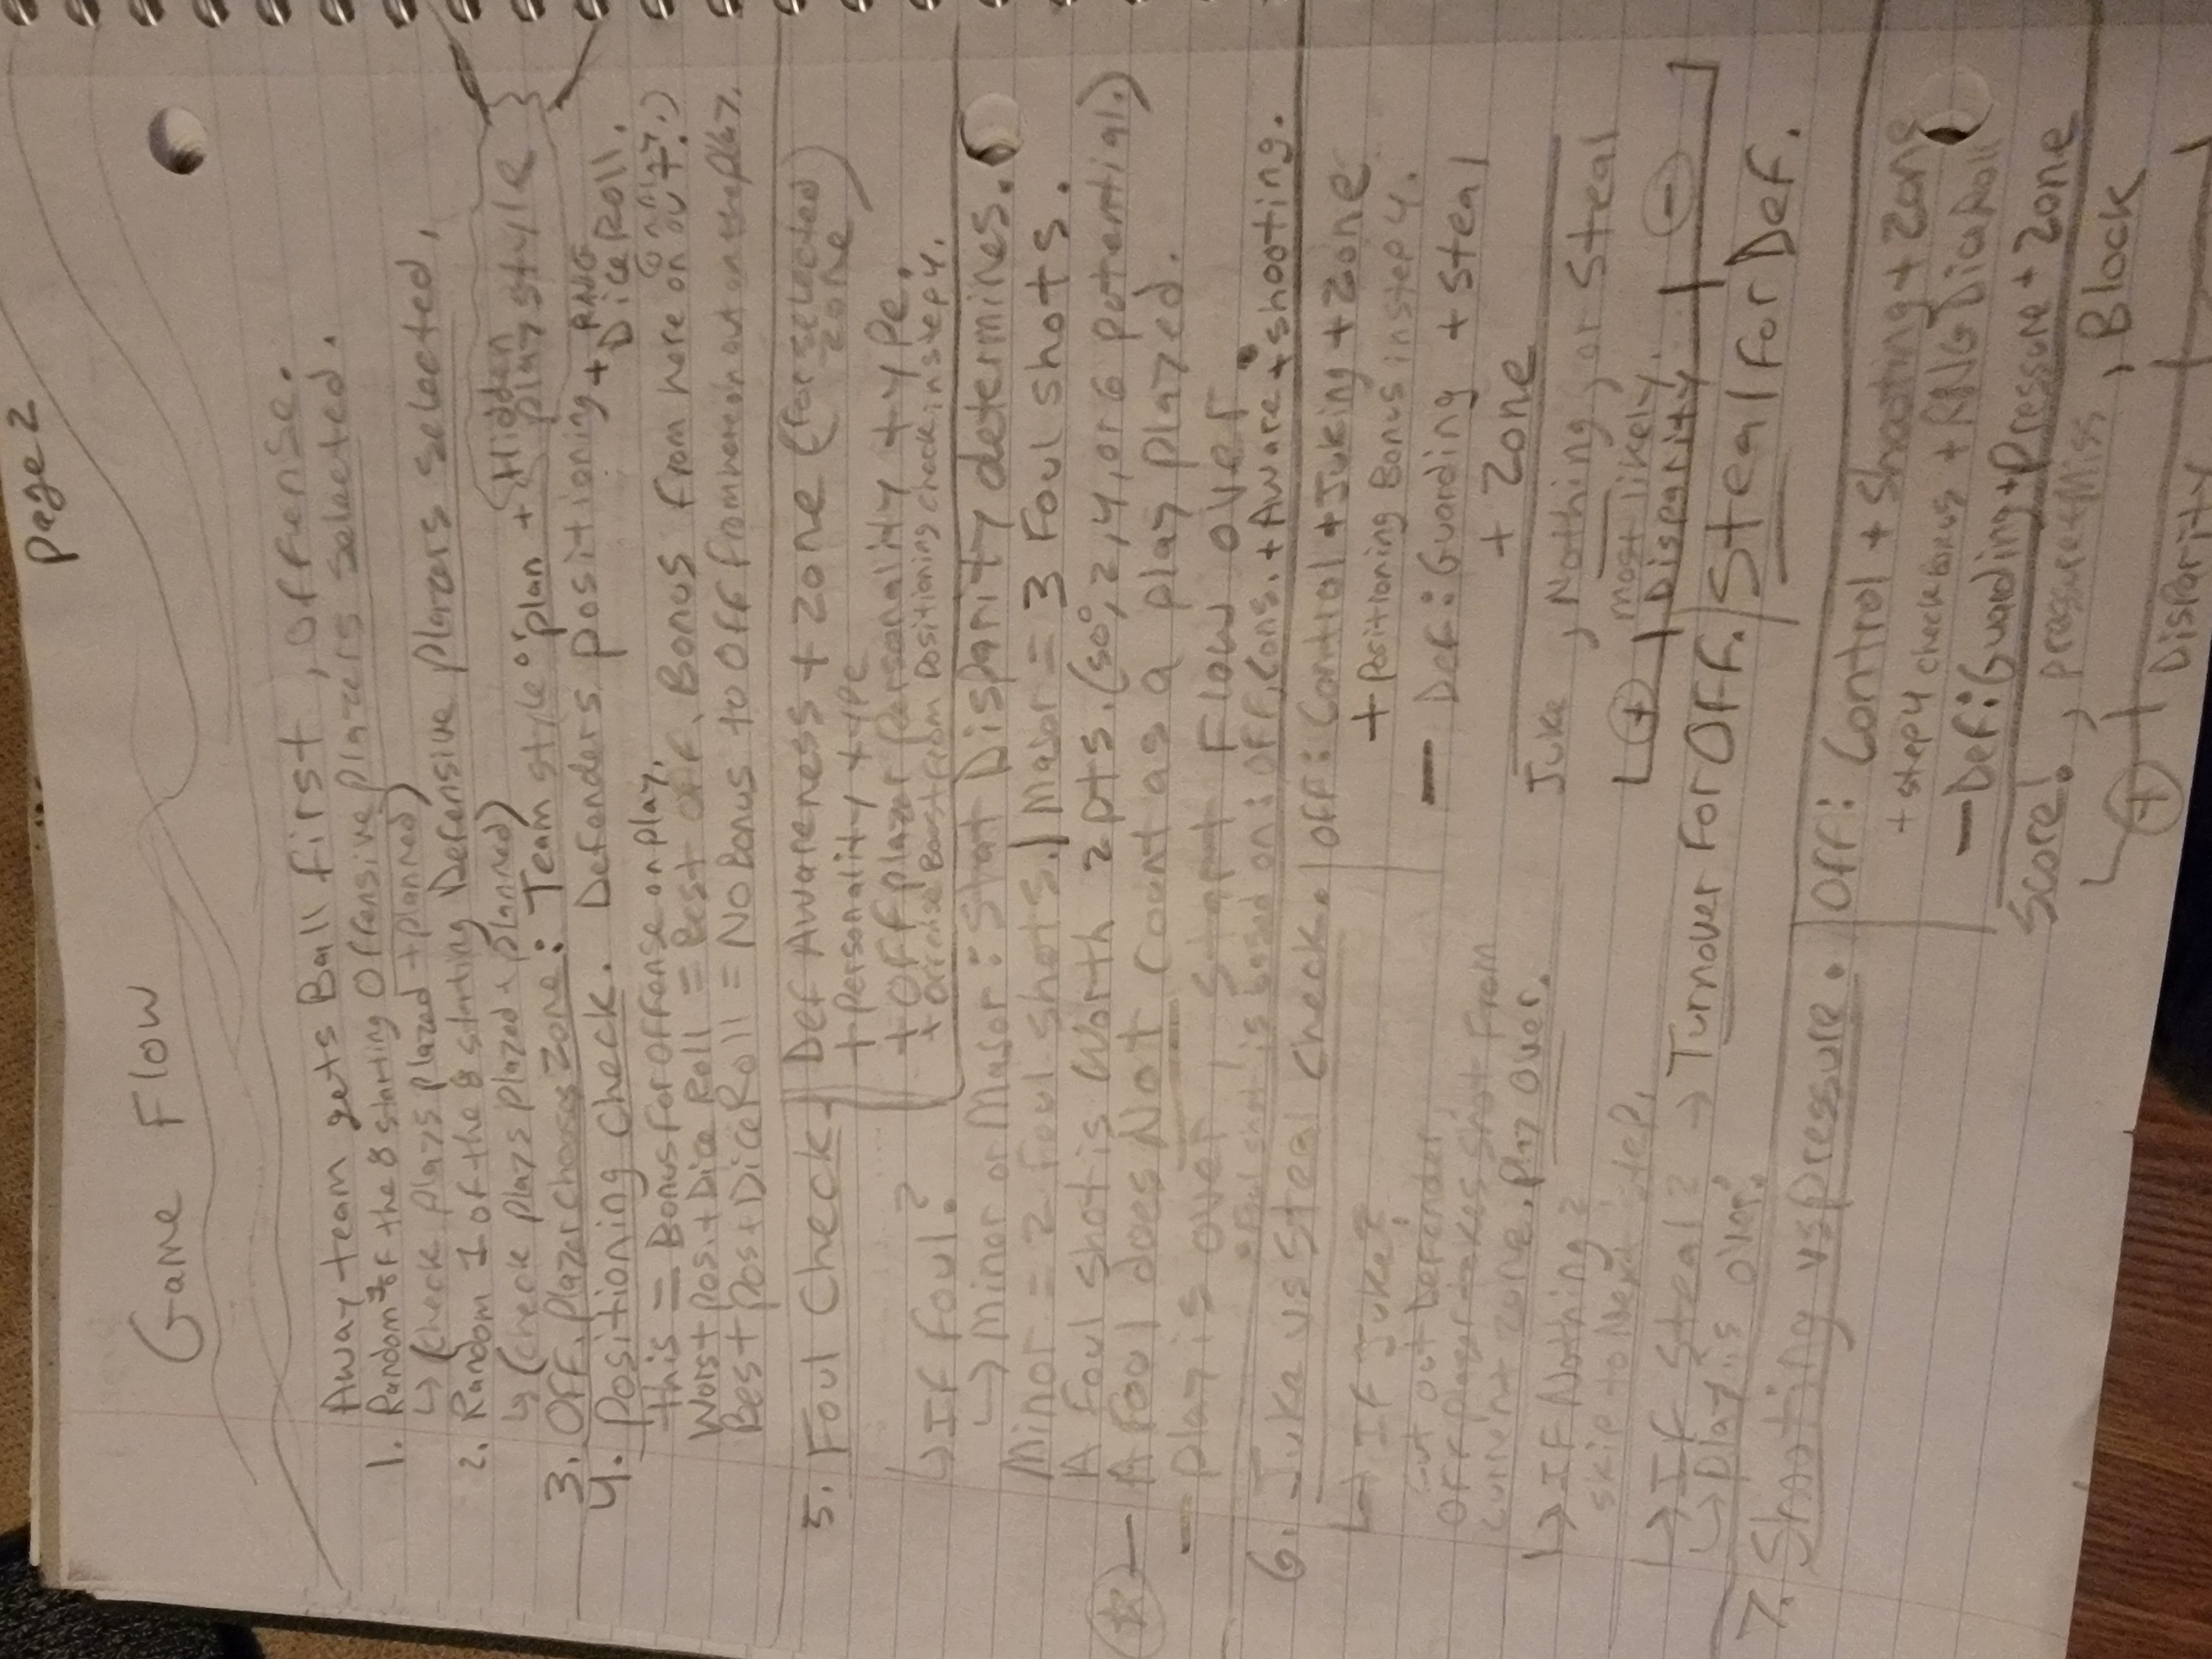 Page 2
Game Flow
Away team gets Ball first, offense.
1. Random 1 of the 8 starting Offensive Players selected.
↳ (check plays played + planned)
2. Random 1 of the 8 starting Defensive Players selected.
↳ (check plays played + planned)
3. Off. Player chooses Zone: Team style or plan + Hidden play style
4. Positioning Check. Defenders positioning + RNG Dice Roll.
this = Bonus for offense on play.
Worst pos. + Dice Roll = Best Off. Bonus from here on out. (on play.)
Best pos + Dice Roll = No Bonus to Off from here on out on the play.
5. Foul Check
Def Awareness + Zone (for selected zone)
+ personality type
+ Off player personality type.
+ offense Boost from Positioning check in step 4.
↳ If foul?
↳ Minor or Major: Stat Disparity determines.
Minor = 2 foul shots. | Major = 3 Foul shots.
A foul shot is worth 2pts. (so 0, 2, 4, or 6 potential.)
☆ — A foul does Not count as a play played.
— play is over, start Flow over.
• Foul shot is based on: Off, Cons. + Aware + shooting.
6. Juke vs Steal Check.
Off: Control + Juking + Zone
+ Positioning Bonus in step 4.
— Def: Guarding + Steal
+ Zone
Juke, Nothing, or Steal
+ most likely. −
Disparity
↳ If Juke?
Cut out Defender.
Off player takes shot from
current zone. Play Over.
↳ If Nothing?
skip to Next step.
↳ If Steal? → Turnover for Off. | Steal for Def.
↳ play is over.
7. Shooting vs pressure.
Off: Control + Shooting + Zone
+ step 4 check Bonus + RNG Dice Roll
— Def: Guarding + Pressure + Zone
Score!, pressure + Miss, Block
+ Disparity